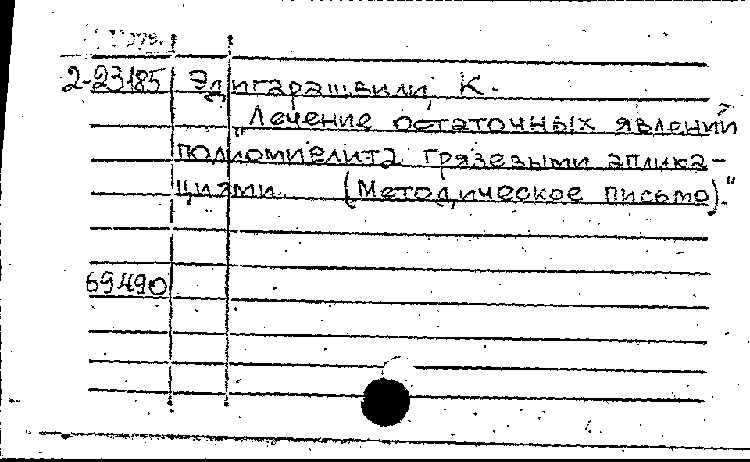 2-23185 Эдигарашвили, К.
"Лечение остаточных явлений
полиомиелита грязевыми аплика-
циями. (Методическое письмо)."
69490